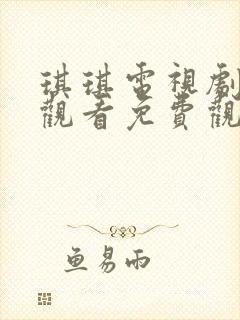 琪琪電視劇
觀看免費觀
鱼易雨